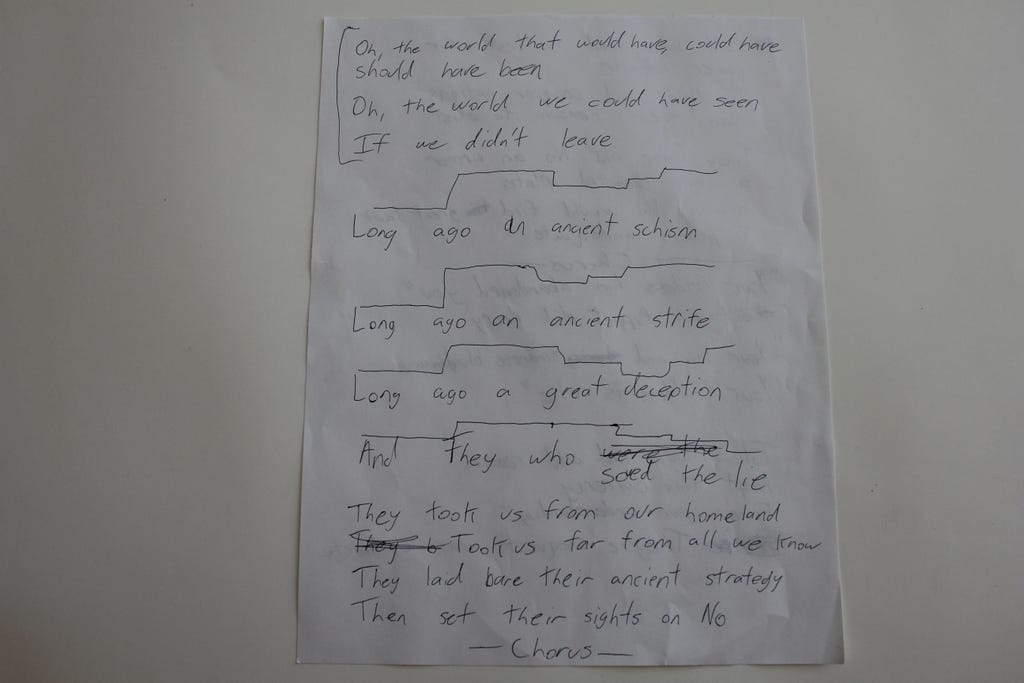 Oh, the world that would have, could have
should have been
Oh, the world we could have seen
If we didn't leave
Long ago an ancient schism
Long ago an ancient strife
Long ago a great deception
And they who were the
soed the lie
They took us from our homeland
They Took us far from all we know
They laid bare their ancient strategy
Then set their sights on No
— Chorus —